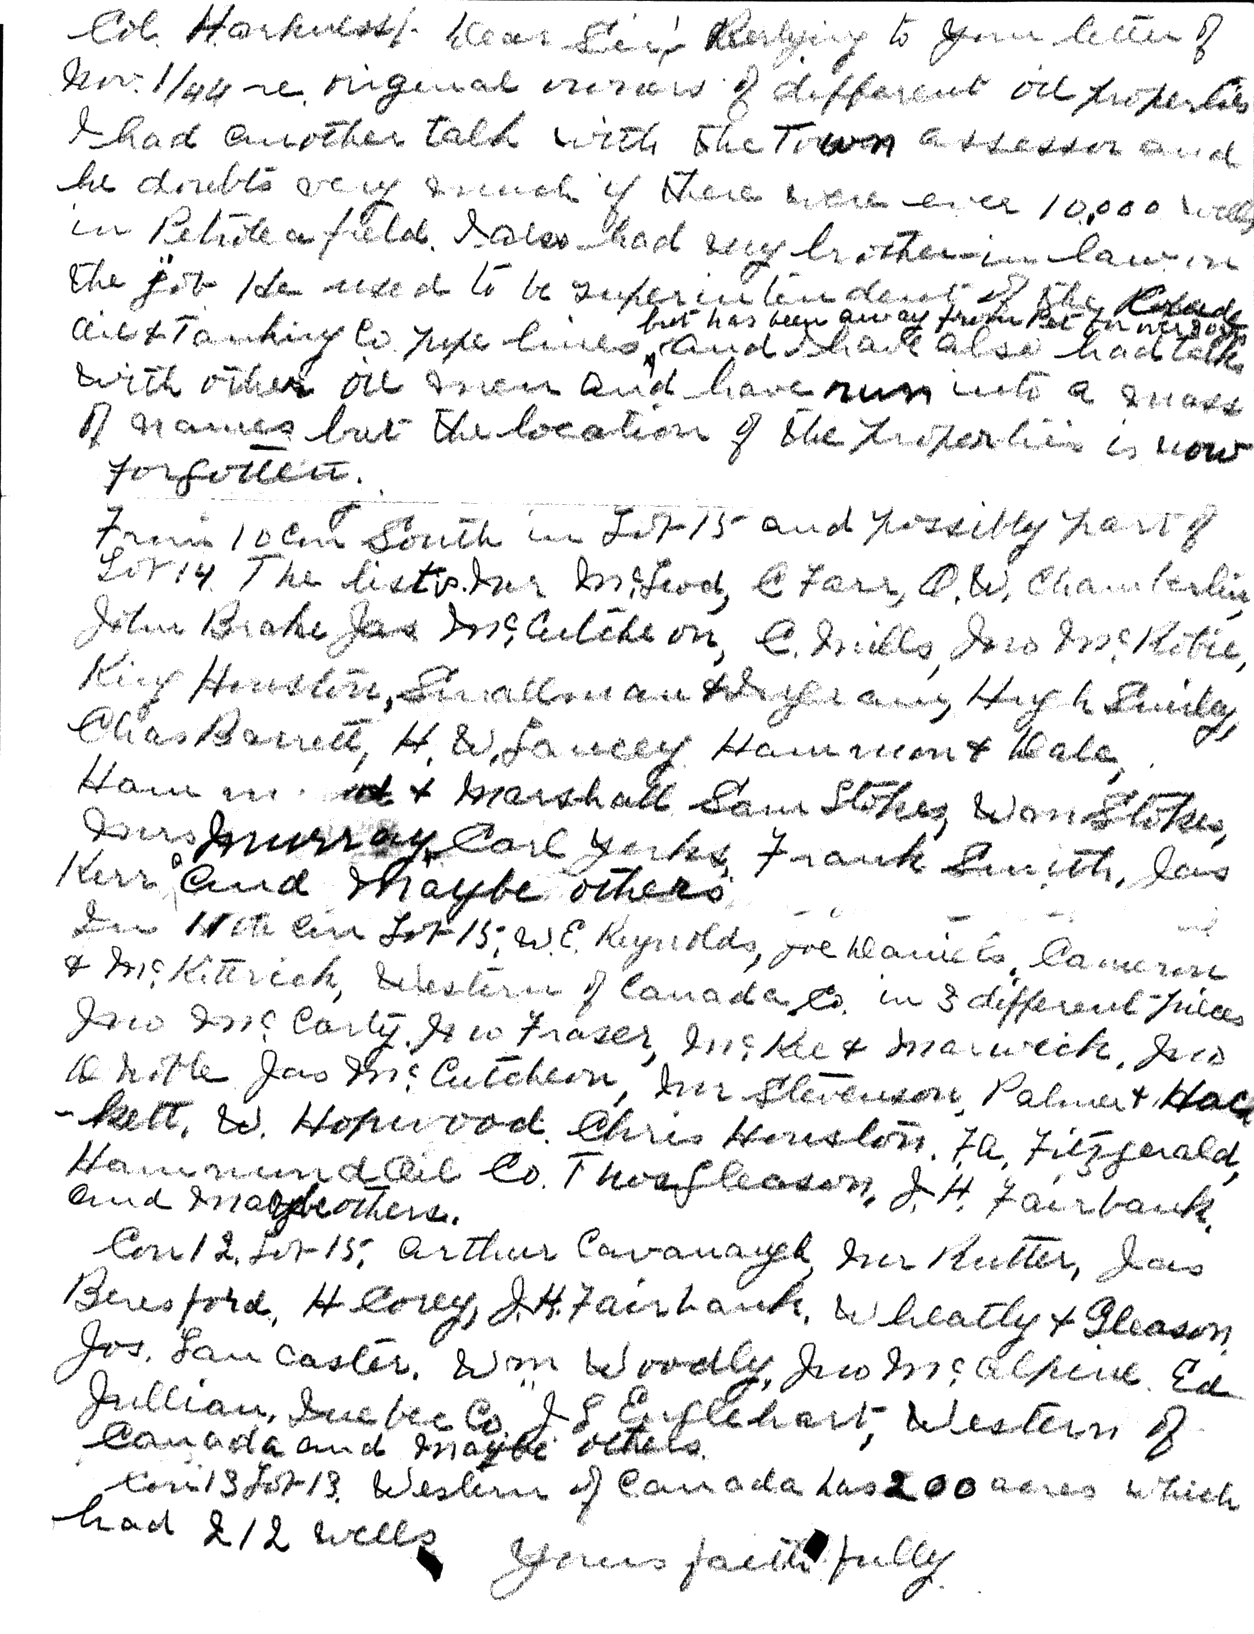 Col. Harkness/. Dear Sir; Replying to your letter of
Nov. 1/44 re. original owners of different oil properties
I had another talk with the Town assessor and
he doubts very much if there were ever 10,000 wells
in Petrolea field. I also had my brother-in-law on
the job He used to be superintendent of the
but has been away from Pet for over
Oil & Tanking Co pipe lines, and I have also had talks
with other oil men and have run into a mass
of names but the location of the properties is now
forgotten.
From 10 Con South in Lot 15 and possibly part of
Lot 14. The list is. Mr McLeod, C Farr, O. W. Chamberlin,
John Brake Jas McCutcheon, C. Mills, Jno McRobie,
King Houston, Smallman & Ingram, Hugh Smiley,
Chas Barrett, H. W. Lancey Hammon & Dale,
Ham m & Marshall Sam Stokes, Wm Stokes,
Mrs Murray, Carl Yorks, Frank Smith, Jas
Kerr and Maybe others
In 11th Con Lot 15, W. E. Reynolds, Joe Daniels, Cameron
& McKittrick, Western of Canada Co. in 3 different pieces
Jno McCarty. Jno Fraser, McKee & Marwick, Jno
D Noble Jas McCutcheon, Mr Stevenson, Palmer & Hac
-kett, W. Hopwood. Chris Houston. F. A. Fitzgerald,
Hammund Oil Co. Thos Gleason, J. H. Fairbank.
and Maybe others.
Con 12. Lot 15; Arthur Cavanaugh, Mr Rutter, Jas
Beresford, H Corey, J. H. Fairbank. Wheatly & Gleason,
Jos. Lancaster. Wm Woodly, Jno McAlpine. Ed
Jullian, Quebec Co, J L Englehart, Western of
Canada and Maybe others.
Con 13 Lot 13. Western of Canada has 200 acres which
had 212 wells
Yours faithfully